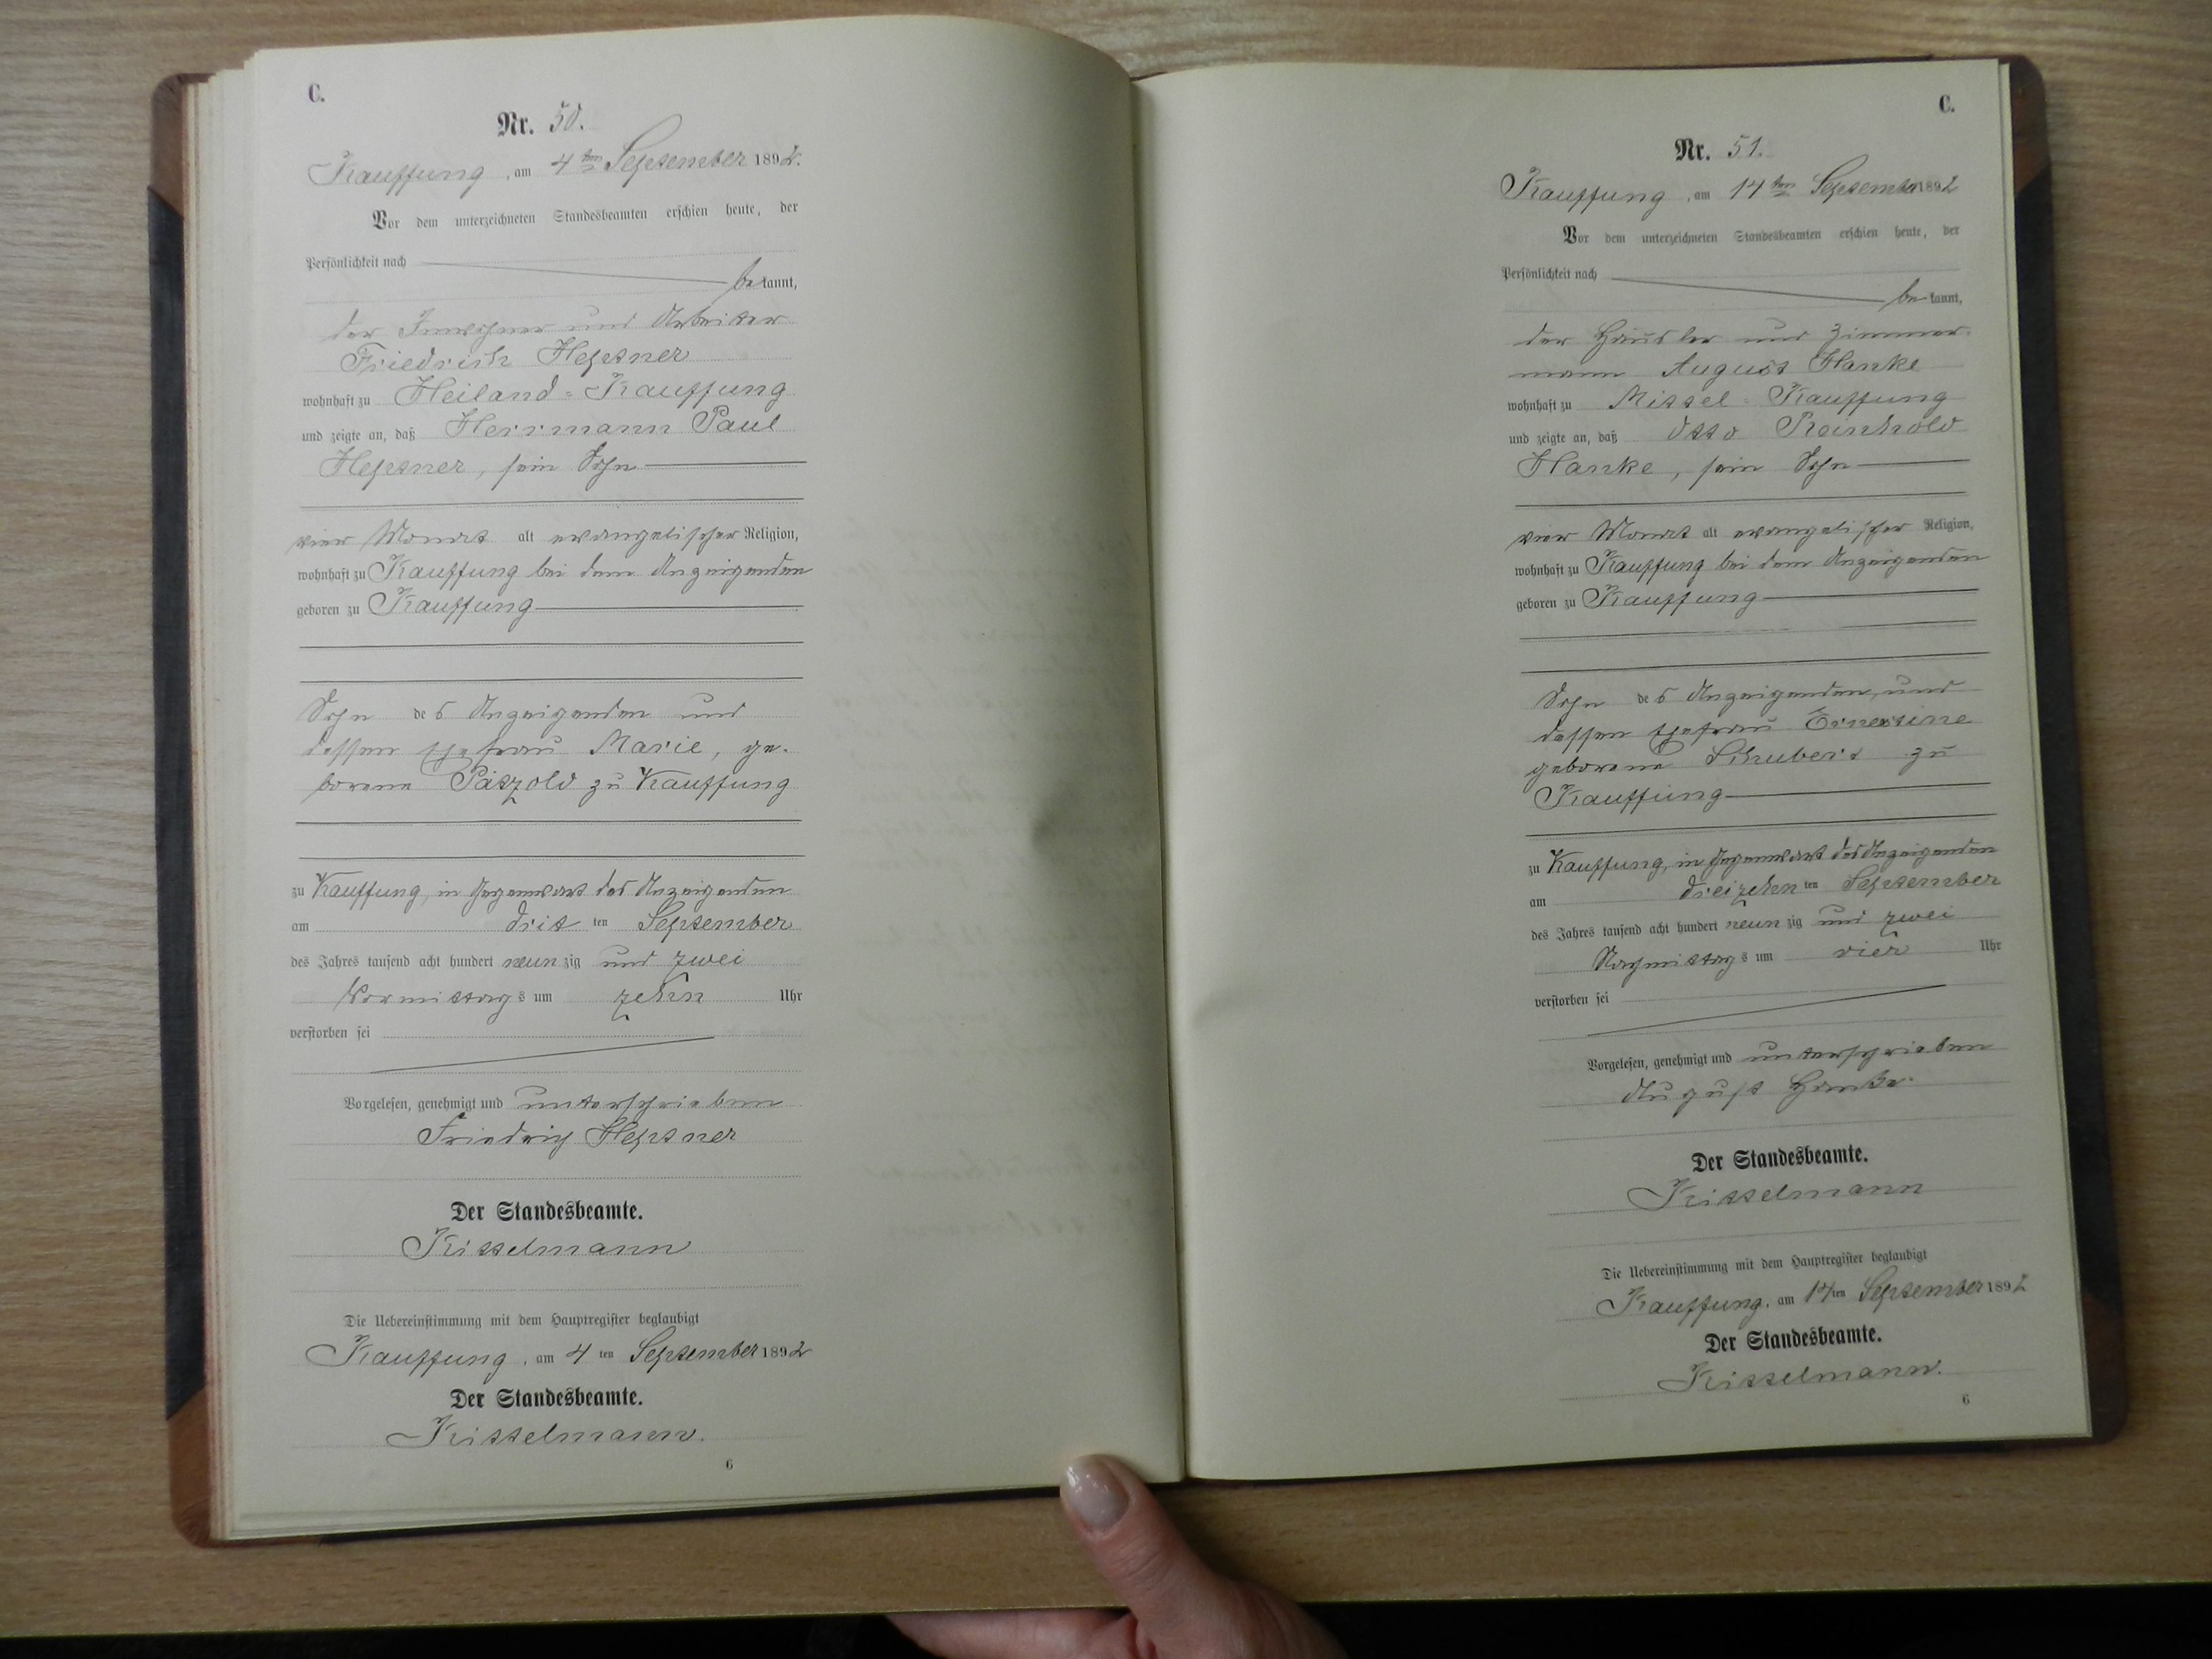 C.
Nr. 50.
Kauffung, am 4ten September 1892.
Vor dem unterzeichneten Standesbeamten erschien heute, der
Persönlichkeit nach
bekannt,
der Inwohner und Arbeiter
Friedrich Hepsner
wohnhaft zu Heiland-Kauffung
und zeigte an, daß Herrmann Paul
Hepsner, sein Sohn
vier Monat alt evangelischer Religion,
wohnhaft zu Kauffung bei dem Anzeigenden
geboren zu Kauffung
Sohn des Anzeigenden und
dessen Ehefrau Marie, ge-
borene Pätzold zu Kauffung
zu Kauffung, in Gegenwart des Anzeigenden
am dritten September
des Jahres tausend acht hundert neunzig und zwei
Vormittags um zehn Uhr
verstorben sei
Vorgelesen, genehmigt und unterschrieben
Friedrich Hepsner
Der Standesbeamte.
Kittelmann
Die Uebereinstimmung mit dem Hauptregister beglaubigt
Kauffung, am 4ten September 1892
Der Standesbeamte.
Kittelmann.
6
C.
Nr. 51.
Kauffung, am 14ten September 1892
Vor dem unterzeichneten Standesbeamten erschien heute, der
Persönlichkeit nach
bekannt,
der Häusler und Zimmer-
mann August Hanke
wohnhaft zu Mittel-Kauffung
und zeigte an, daß Otto Reinhold
Hanke, sein Sohn
vier Monat alt evangelischer Religion,
wohnhaft zu Kauffung bei dem Anzeigenden
geboren zu Kauffung
Sohn des Anzeigenden, und
dessen Ehefrau Ernestine
geborene Schubert zu
Kauffung
zu Kauffung, in Gegenwart des Anzeigenden
am dreizehnten September
des Jahres tausend acht hundert neunzig und zwei
Nachmittags um vier Uhr
verstorben sei
Vorgelesen, genehmigt und unterschrieben
August Hanke.
Der Standesbeamte.
Kittelmann
Die Uebereinstimmung mit dem Hauptregister beglaubigt
Kauffung, am 14ten September 1892
Der Standesbeamte.
Kittelmann.
6